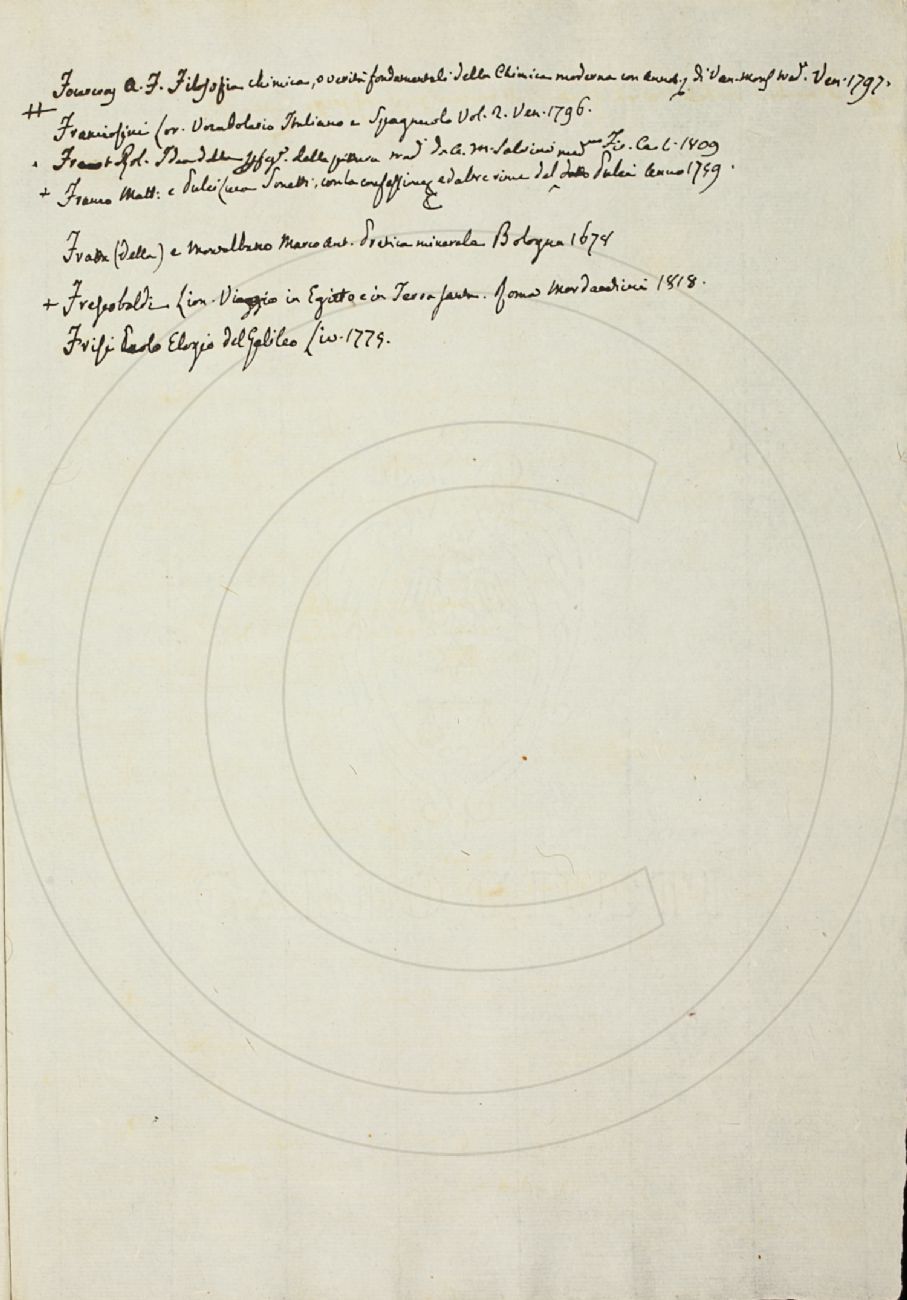 Fourcroy A. F. Filosofia chimica, o verità fondamentali della Chimica moderna con annot. di Van-Mons trad. Ven. 1797.
++ Franciosini Lor. Vocabolario Italiano e Spagnuolo Vol. 2. Ven. 1796.
. Freart Rol. Idea della della pittura trad. da A. M. Salvini Fir. Ca. 1809
+ Franco Matt. e Pulci Luca Sonetti, con la confessione ed altre rime del detto Pulci anno 1759.
Fratta (della) e Montalbano Marco Ant. Pratica minerale Bologna 1678
+ Frescobaldi Lion. Viaggio in Egitto e in Terra Santa. Roma Mordacchini 1818.
Frisi Paolo Elogio del Galileo Liv. 1775.